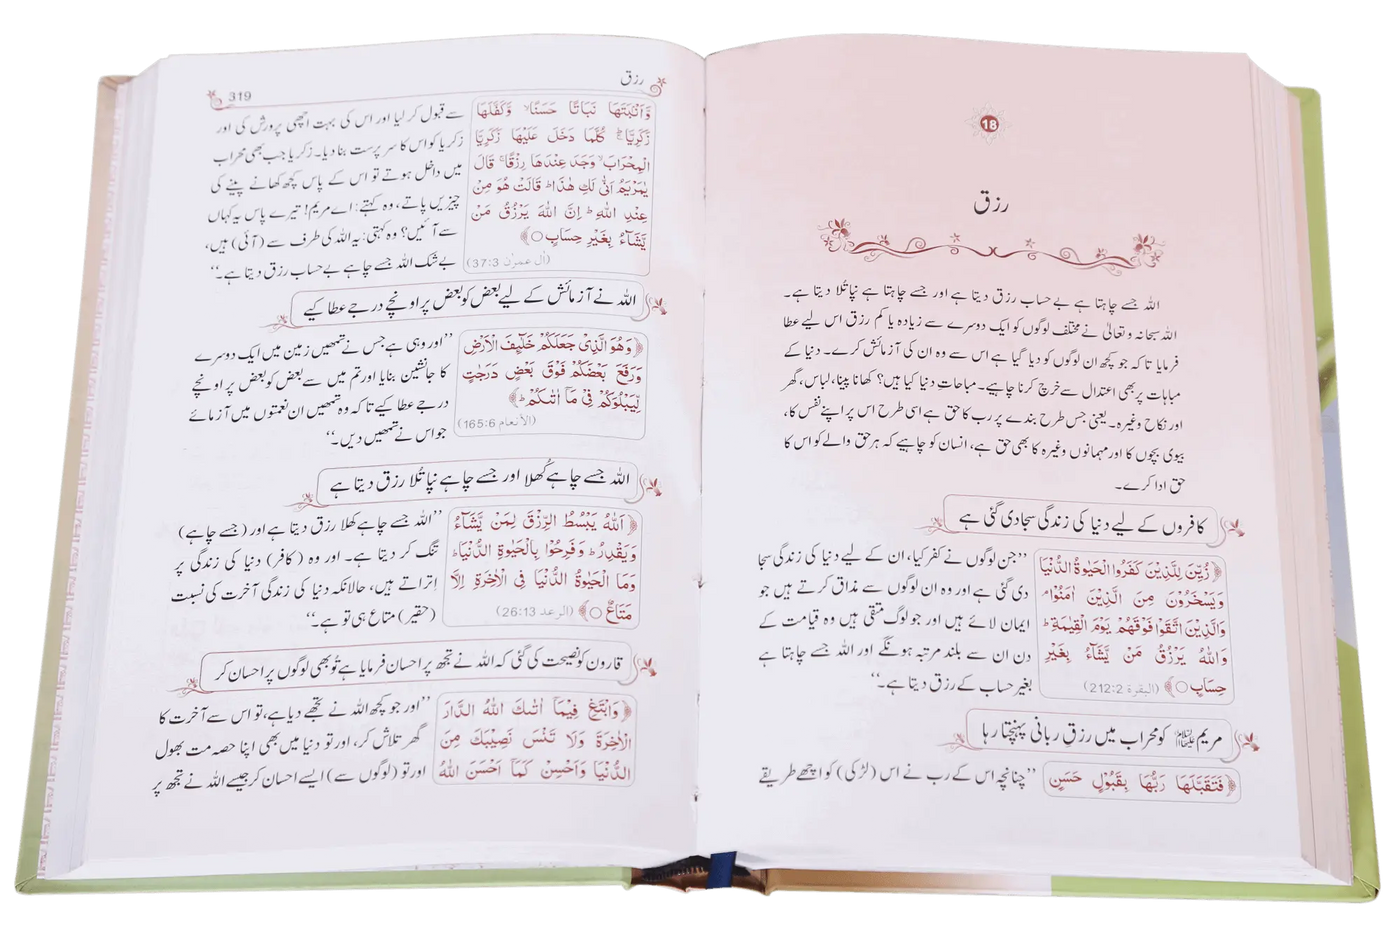 18
رزق
اللہ جسے چاہتا ہے بے حساب رزق دیتا ہے اور جسے چاہتا ہے نپا تُلا دیتا ہے۔
اللہ سبحانہ و تعالیٰ نے مختلف لوگوں کو ایک دوسرے سے زیادہ یا کم رزق اس لیے عطا
فرمایا تاکہ جو کچھ ان لوگوں کو دیا گیا ہے اس سے وہ ان کی آزمائش کرے۔ دنیا کے
مباہات پر بھی اعتدال سے خرچ کرنا چاہیے۔ مباحاتِ دنیا کیا ہیں؟ کھانا پینا، لباس، گھر
اور نکاح وغیرہ۔ یعنی جس طرح بندے پر رب کا حق ہے اسی طرح اس پر اپنے نفس کا،
بیوی بچوں کا اور مہمانوں وغیرہ کا بھی حق ہے، انسان کو چاہیے کہ ہر حق والے کو اس کا
حق ادا کرے۔
کافروں کے لیے دنیا کی زندگی سجا دی گئی ہے
﴿ زُيِّنَ لِلَّذِيْنَ كَفَرُوا الْحَيٰوةُ الدُّنْيَا
وَيَسْخَرُوْنَ مِنَ الَّذِيْنَ اٰمَنُوْا ۘ
وَالَّذِيْنَ اتَّقَوْا فَوْقَهُمْ يَوْمَ الْقِيٰمَةِ ؕ
وَاللّٰهُ يَرْزُقُ مَنْ يَّشَآءُ بِغَيْرِ
حِسَابٍ ○ ﴾ (البقرة 212:2)
’’جن لوگوں نے کفر کیا، ان کے لیے دنیا کی زندگی سجا
دی گئی ہے اور وہ ان لوگوں سے مذاق کرتے ہیں جو
ایمان لائے ہیں اور جو لوگ متقی ہیں وہ قیامت کے
دن ان سے بلند مرتبہ ہونگے اور اللہ جسے چاہتا ہے
بغیر حساب کے رزق دیتا ہے۔‘‘
مریم علیہا السلام کو محراب میں رزقِ ربانی پہنچتا رہا
﴿ فَتَقَبَّلَهَا رَبُّهَا بِقَبُوْلٍ حَسَنٍ
’’چنانچہ اس کے رب نے اس (لڑکی) کو اچھے طریقے
رزق
319
وَّاَنْۢبَتَهَا نَبَاتًا حَسَنًا ۙ وَّكَفَّلَهَا
زَكَرِيَّا ؕ كُلَّمَا دَخَلَ عَلَيْهَا زَكَرِيَّا
الْمِحْرَابَ ۙ وَجَدَ عِنْدَهَا رِزْقًا ۚ قَالَ
يٰمَرْيَمُ اَنّٰى لَكِ هٰذَا ؕ قَالَتْ هُوَ مِنْ
عِنْدِ اللّٰهِ ؕ اِنَّ اللّٰهَ يَرْزُقُ مَنْ
يَّشَآءُ بِغَيْرِ حِسَابٍ ○ ﴾
(آل عمرٰن 37:3)
سے قبول کر لیا اور اس کی بہت اچھی پرورش کی اور
زکریا کو اس کا سرپرست بنا دیا۔ زکریا جب بھی محراب
میں داخل ہوتے تو اس کے پاس کچھ کھانے پینے کی
چیزیں پاتے، وہ کہتے: اے مریم! تیرے پاس یہ کہاں
سے آئیں؟ وہ کہتی: یہ اللہ کی طرف سے (آئی) ہیں،
بے شک اللہ جسے چاہے بے حساب رزق دیتا ہے۔‘‘
اللہ نے آزمائش کے لیے بعض کو بعض پر اونچے درجے عطا کیے
﴿ وَهُوَ الَّذِىْ جَعَلَكُمْ خَلٰٓئِفَ الْاَرْضِ
وَرَفَعَ بَعْضَكُمْ فَوْقَ بَعْضٍ دَرَجٰتٍ
لِّيَبْلُوَكُمْ فِىْ مَاۤ اٰتٰىكُمْ ؕ ﴾
(الأنعام 165:6)
’’اور وہی ہے جس نے تمھیں زمین میں ایک دوسرے
کا جانشین بنایا اور تم میں سے بعض کو بعض پر اونچے
درجے عطا کیے تاکہ وہ تمھیں ان نعمتوں میں آزمائے
جو اس نے تمھیں دیں۔‘‘
اللہ جسے چاہے کُھلا اور جسے چاہے نپا تُلا رزق دیتا ہے
﴿ اَللّٰهُ يَبْسُطُ الرِّزْقَ لِمَنْ يَّشَآءُ
وَيَقْدِرُ ؕ وَفَرِحُوْا بِالْحَيٰوةِ الدُّنْيَا ؕ
وَمَا الْحَيٰوةُ الدُّنْيَا فِى الْاٰخِرَةِ اِلَّا
مَتَاعٌ ○ ﴾ (الرعد 26:13)
’’اللہ جسے چاہے کھلا رزق دیتا ہے اور (جسے چاہے)
تنگ کر دیتا ہے۔ اور وہ (کافر) دنیا کی زندگی پر
اِتراتے ہیں، حالانکہ دنیا کی زندگی آخرت کی نسبت
(حقیر) متاع ہی تو ہے۔‘‘
قارون کو نصیحت کی گئی کہ اللہ نے تجھ پر احسان فرمایا ہے تُو بھی لوگوں پر احسان کر
﴿ وَابْتَغِ فِيْمَاۤ اٰتٰىكَ اللّٰهُ الدَّارَ
الْاٰخِرَةَ وَلَا تَنْسَ نَصِيْبَكَ مِنَ
الدُّنْيَا وَاَحْسِنْ كَمَاۤ اَحْسَنَ اللّٰهُ
’’اور جو کچھ اللہ نے تجھے دیا ہے، تو اس سے آخرت کا
گھر تلاش کر، اور تو دنیا میں بھی اپنا حصہ مت بھول
اور تو (لوگوں سے) ایسے احسان کر جیسے اللہ نے تجھ پر